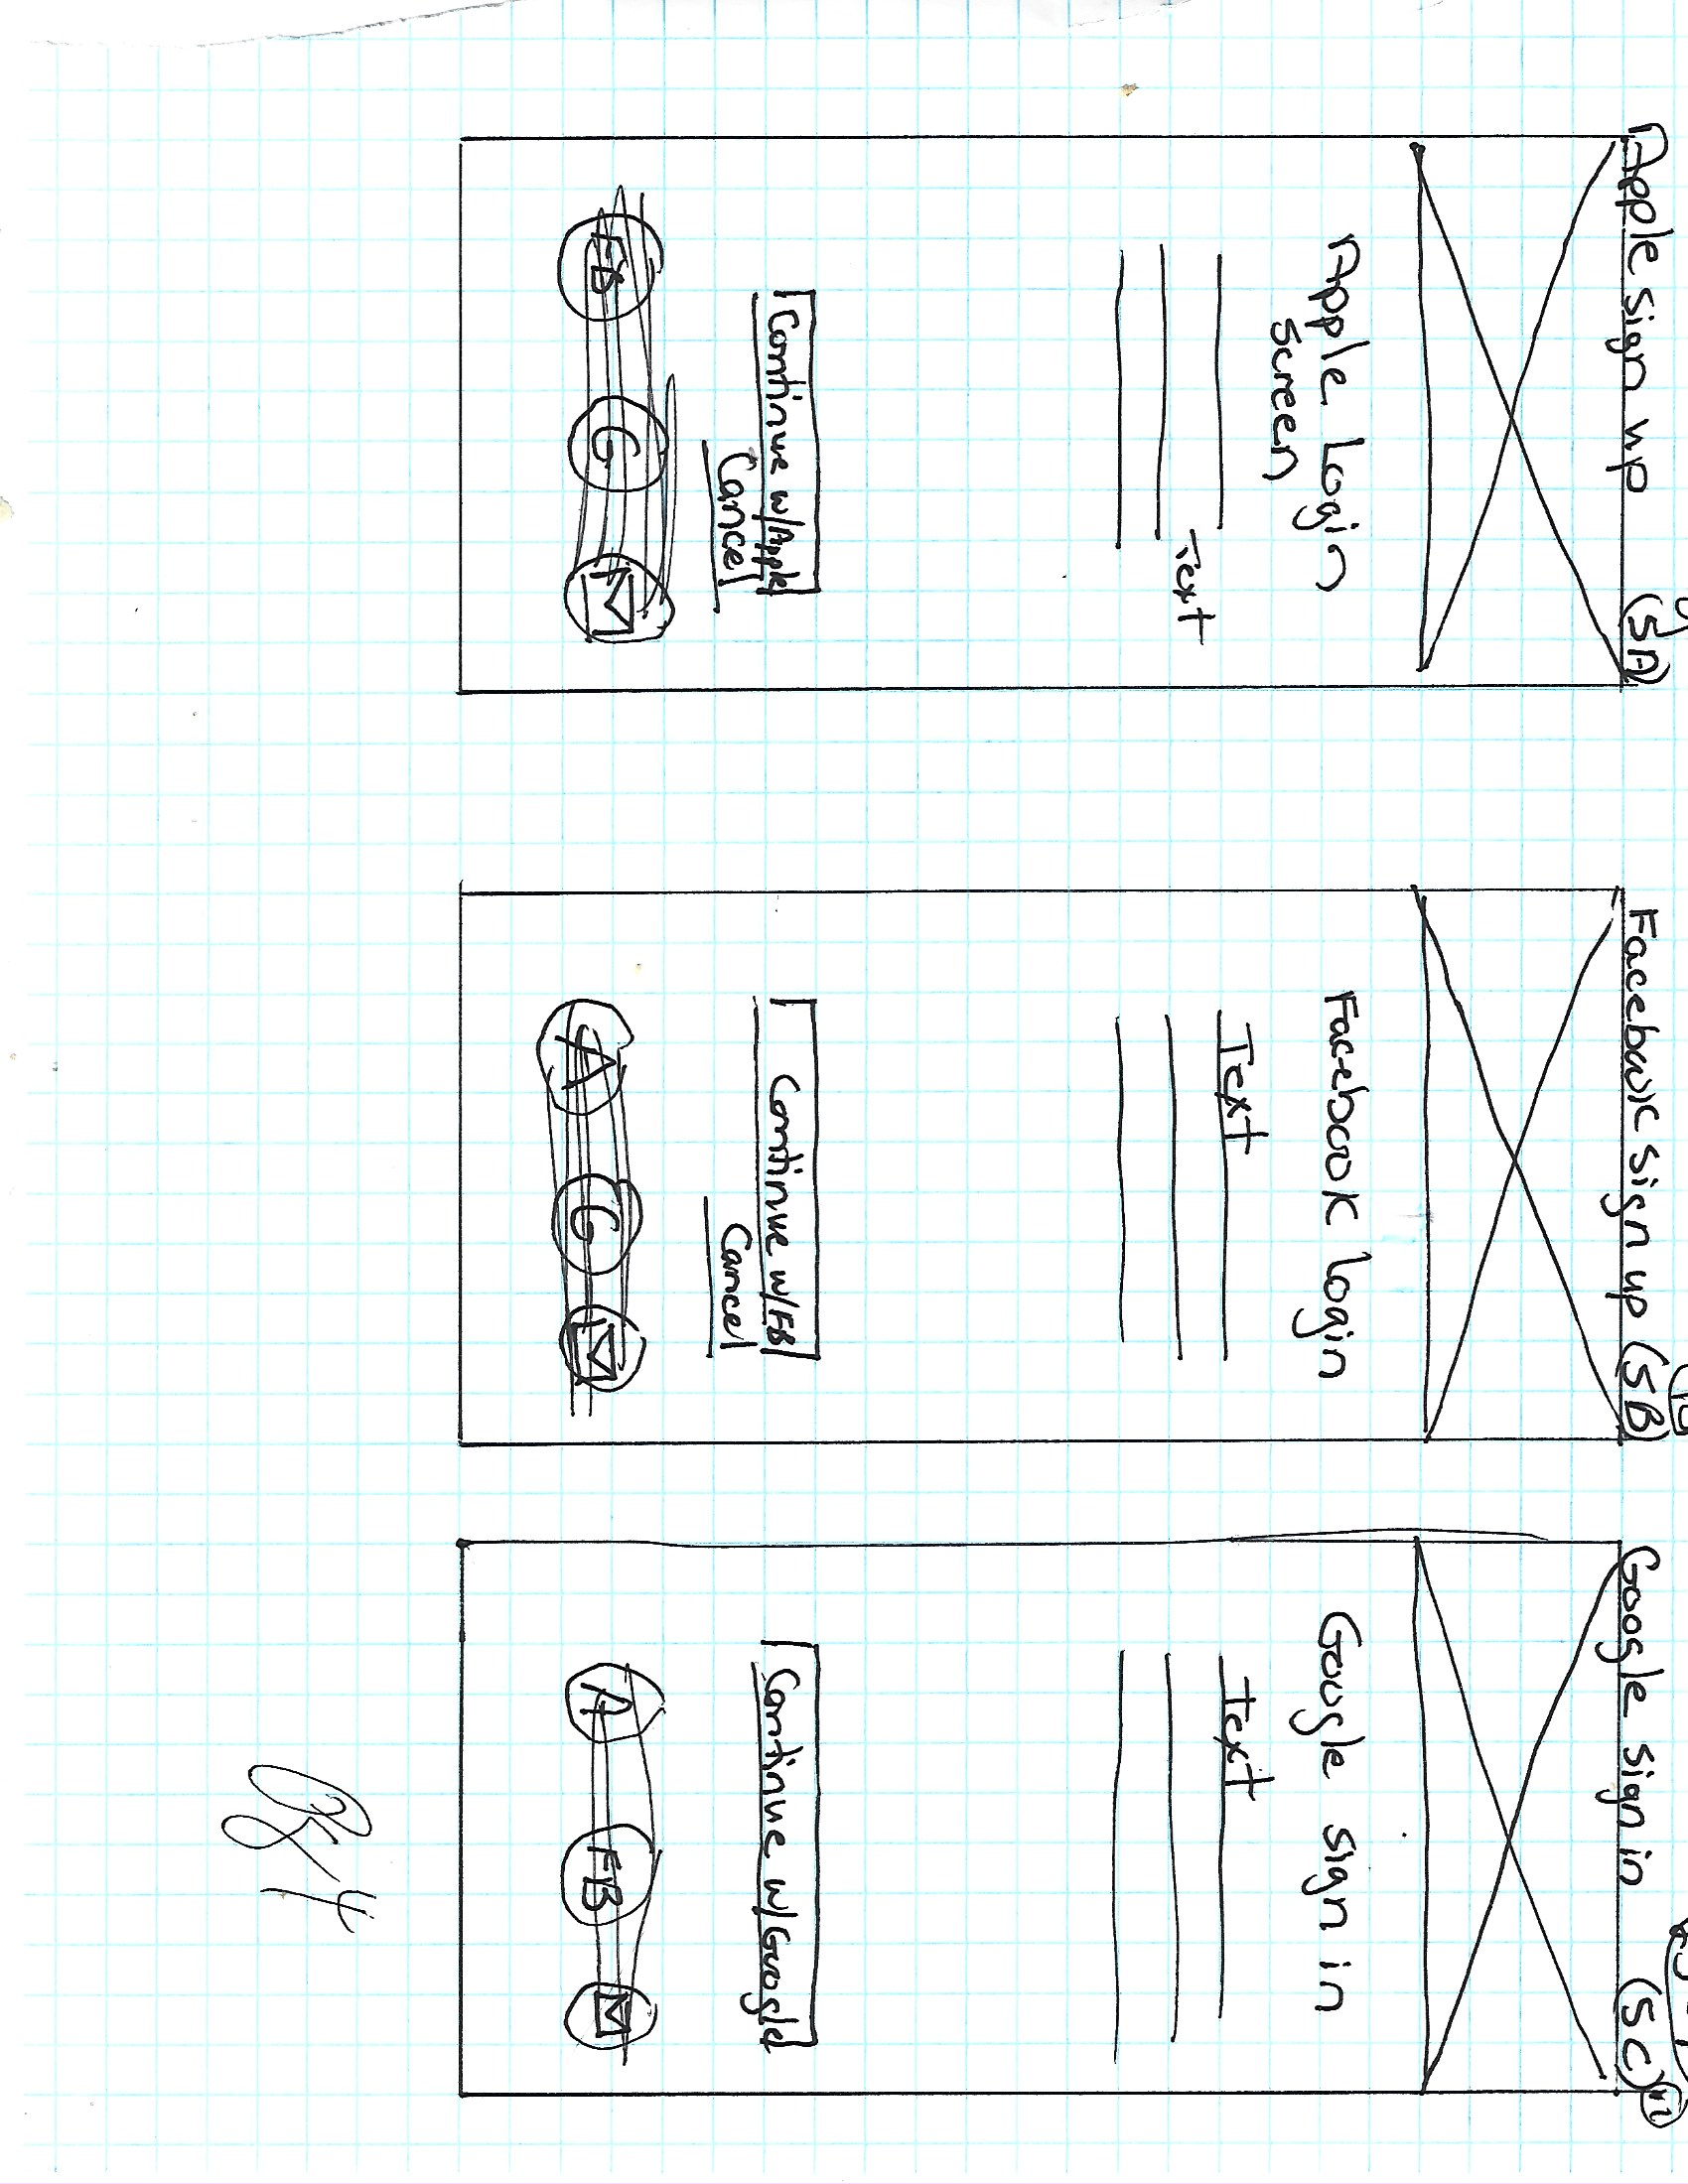 Apple sign up (5A)
Apple Login
Screen
Text
Continue w/Apple
Cancel
FB
G
Facebook sign up (5B)
Facebook login
Text
Continue w/FB
Cancel
A
G
Google sign in (5C)
Google sign in
Text
Continue w/Google
A
FB